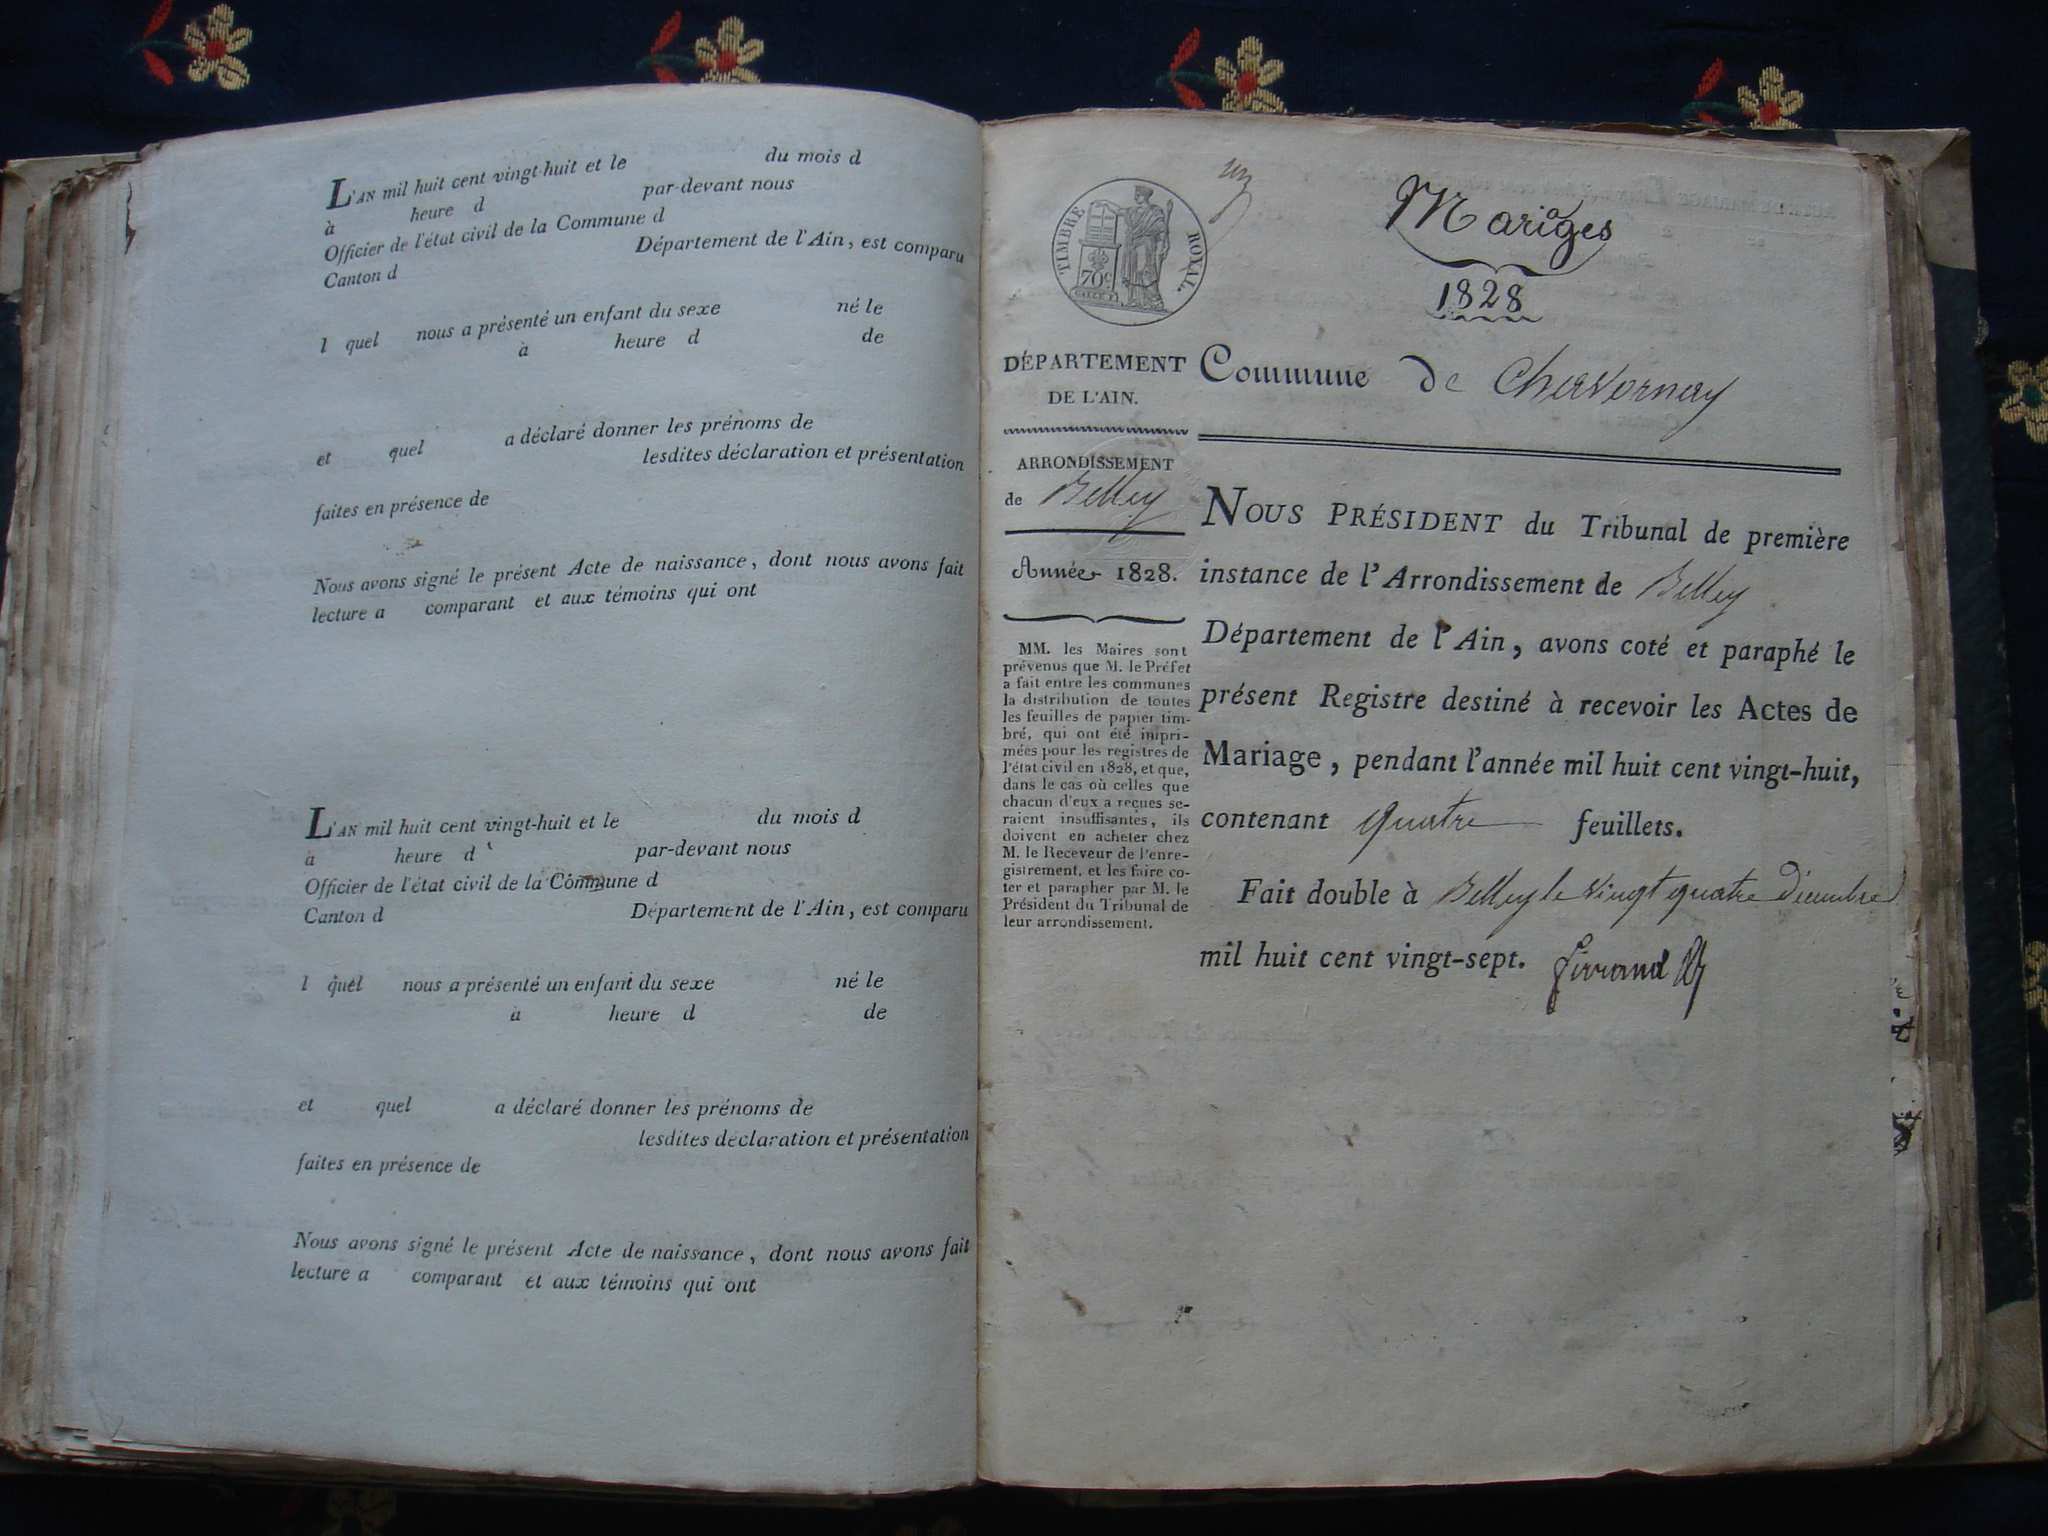 L'AN mil huit cent vingt-huit et le du mois d
à heure d par-devant nous
Officier de l'état civil de la Commune d
Canton d Département de l'Ain, est comparu
l quel nous a présenté un enfant du sexe né le
à heure d de
et quel a déclaré donner les prénoms de
lesdites déclaration et présentation
faites en présence de
Nous avons signé le présent Acte de naissance, dont nous avons fait
lecture a comparant et aux témoins qui ont
L'AN mil huit cent vingt-huit et le du mois d
à heure d par-devant nous
Officier de l'état civil de la Commune d
Canton d Département de l'Ain, est comparu
l quel nous a présenté un enfant du sexe né le
à heure d de
et quel a déclaré donner les prénoms de
lesdites déclaration et présentation
faites en présence de
Nous avons signé le présent Acte de naissance, dont nous avons fait
lecture a comparant et aux témoins qui ont
un
TIMBRE ROYAL.
70c
Mariages
1828
DÉPARTEMENT
DE L'AIN.
Commune de Chavornay
ARRONDISSEMENT
de Belley
Année 1828.
MM. les Maires sont
prévenus que M. le Préfet
a fait entre les communes
la distribution de toutes
les feuilles de papier tim-
bré, qui ont été impri-
mées pour les registres de
l'état civil en 1828, et que,
dans le cas où celles que
chacun d'eux a reçues se-
raient insuffisantes, ils
doivent en acheter chez
M. le Receveur de l'enre-
gistrement, et les faire co-
ter et parapher par M. le
Président du Tribunal de
leur arrondissement.
NOUS PRÉSIDENT du Tribunal de première
instance de l'Arrondissement de Belley
Département de l'Ain, avons coté et paraphé le
présent Registre destiné à recevoir les Actes de
Mariage, pendant l'année mil huit cent vingt-huit,
contenant quatre feuillets.
Fait double à Belley le vingt quatre Décembre
mil huit cent vingt-sept.